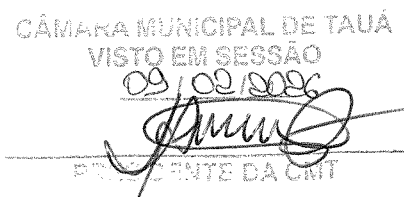 CÂMARA MUNICIPAL DE TAUÁ
VISTO EM SESSÃO
09/02/2026
PRESIDENTE DA CMT